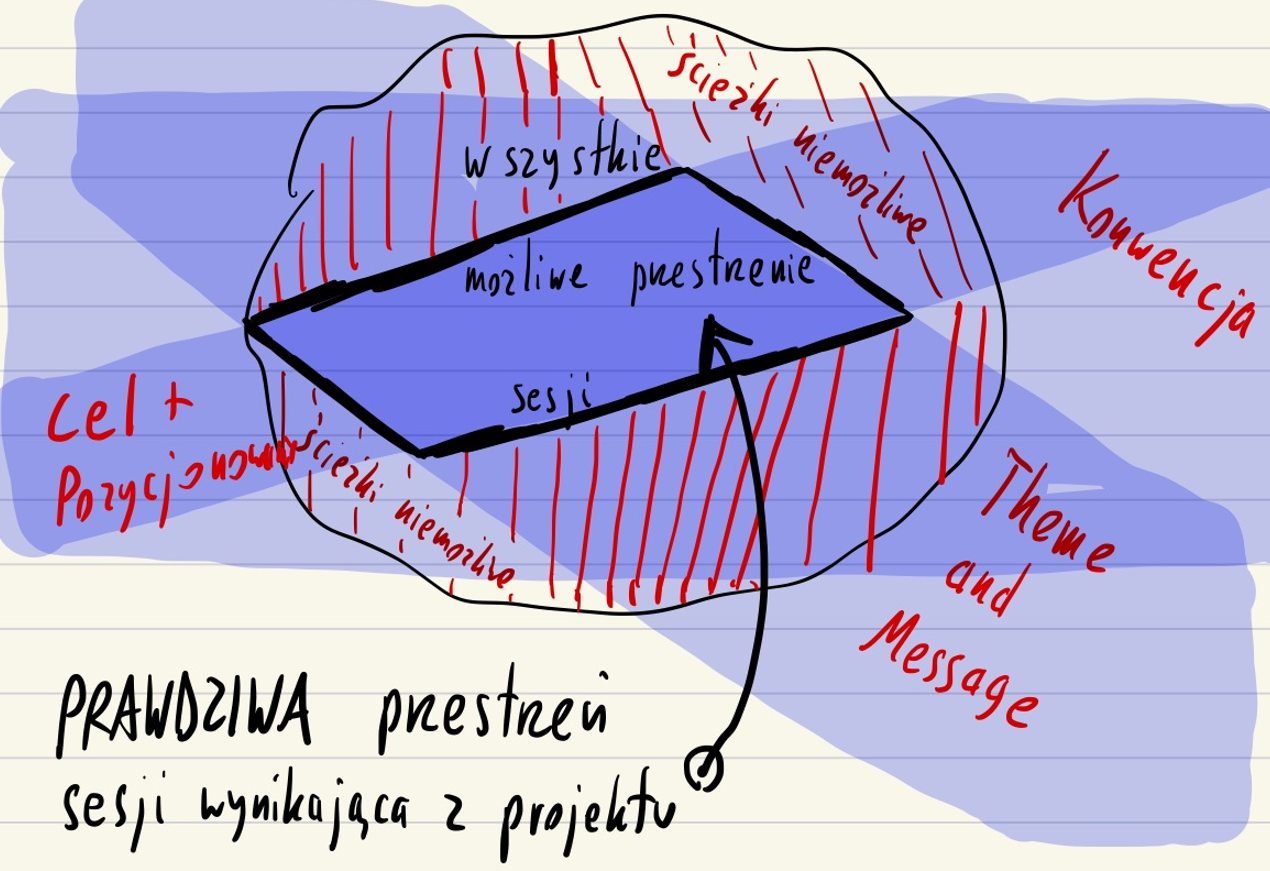 wszystkie
możliwe przestrzenie
sesji
ścieżki niemożliwe
Konwencja
Cel +
Pozycjonowanie
ścieżki niemożliwe
Theme
and
Message
PRAWDZIWA przestrzeń
sesji wynikająca z projektu